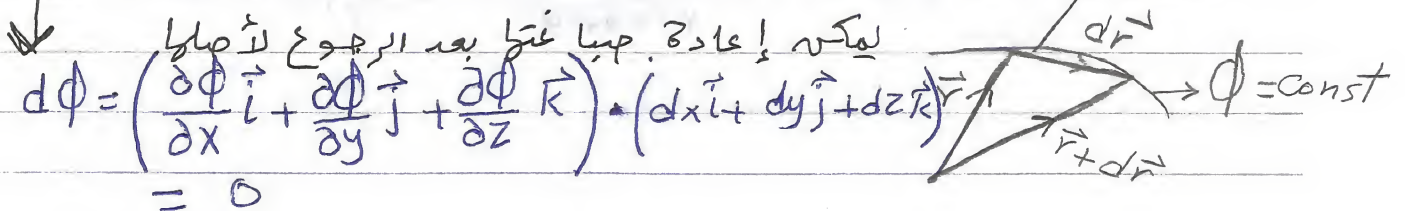 يمكن إعادة صياغتها بعد الرجوع لأصلها
dφ = (∂φ/∂x i⃗ + ∂φ/∂y j⃗ + ∂φ/∂z k⃗) • (dx i⃗ + dy j⃗ + dz k⃗)
= 0
dr⃗
r⃗
φ = const
r⃗ + dr⃗